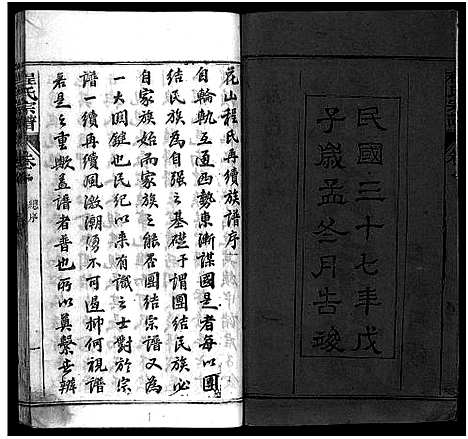 民國三十七年戊
子歲孟冬月告竣
花山程氏再續族譜序
自輪軌互通西勢東漸謀國是者每以團
結民族為自强之基礎于謂團結民族必
自家族始而家族之能否團結宗譜又為
一大關鍵也民紀以來有識之士對於宗
譜一續再續風激潮湧不可遏抑何視譜
若是之重歟蓋譜者普也所以奠繫世辨
程氏宗譜
卷首
總序
一